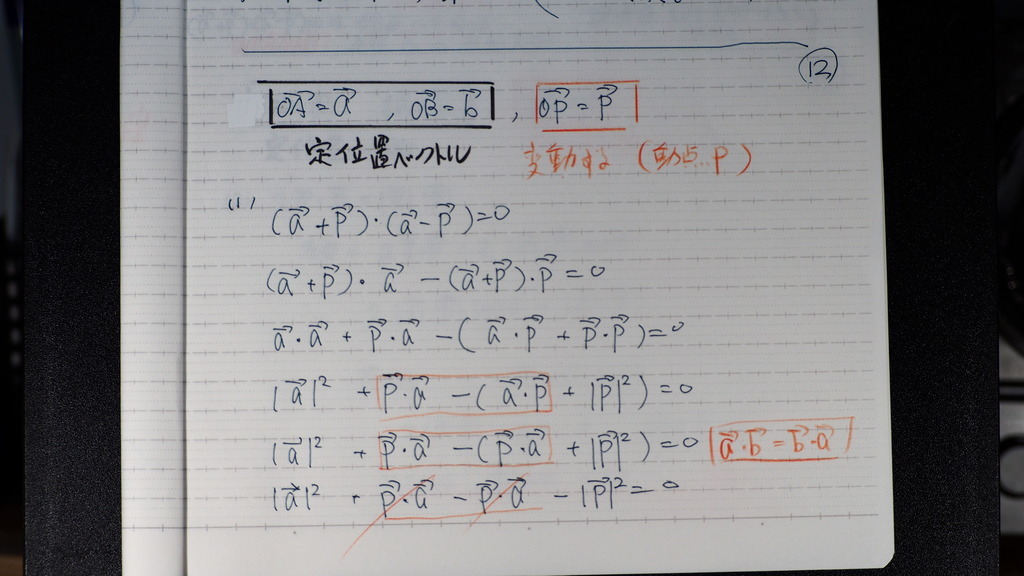 ⑫
→OA = →a , →OB = →b , →OP = →p
定位置ベクトル 変動する (動点 P)
(1)
(→a + →p)・(→a - →p) = 0
(→a + →p)・→a - (→a + →p)・→p = 0
→a・→a + →p・→a - (→a・→p + →p・→p) = 0
|→a|² + →p・→a - (→a・→p + |→p|²) = 0
|→a|² + →p・→a - (→p・→a + |→p|²) = 0 →a・→b = →b・→a
|→a|² + →p・→a - →p・→a - |→p|² = 0